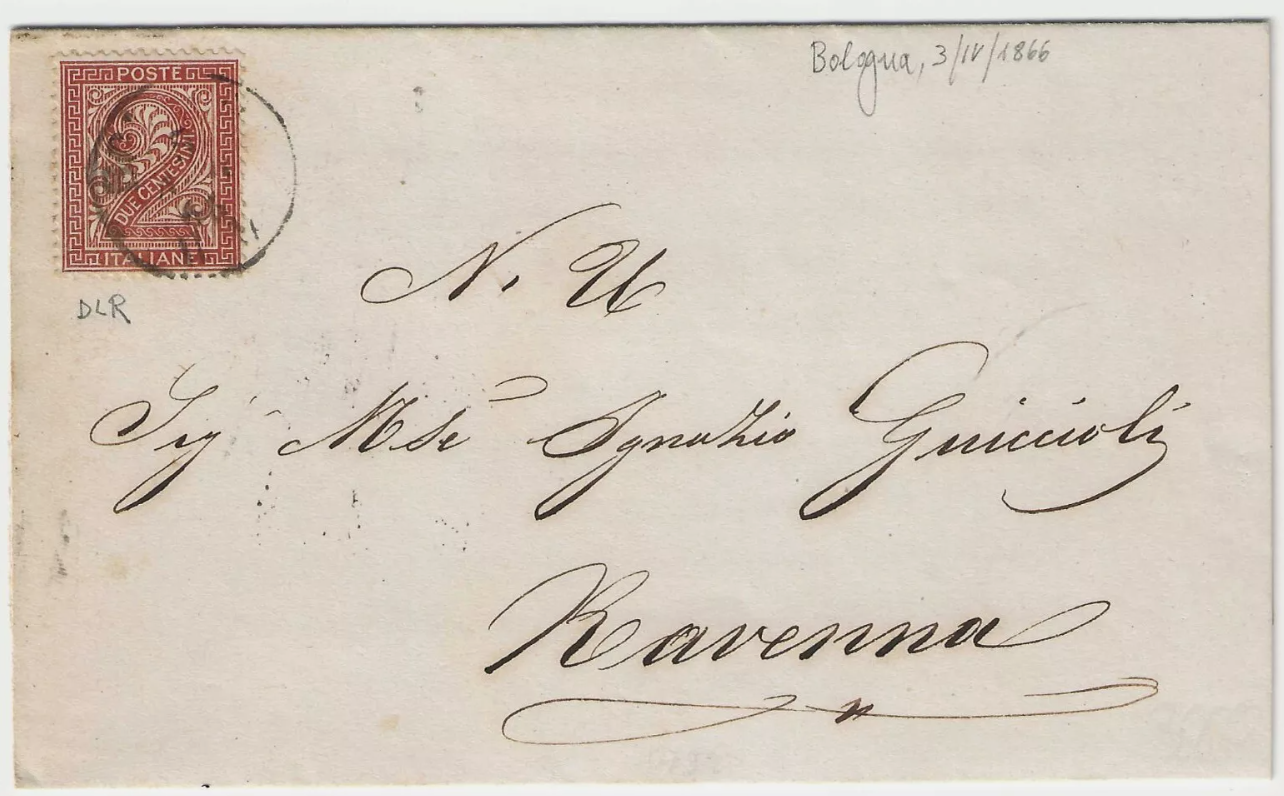 Bologna, 3/IV/1866
POSTE
DUE CENTESIMI
ITALIANE
DLR
N. U
Sig Mse Ignazio Guiccioli
Ravenna